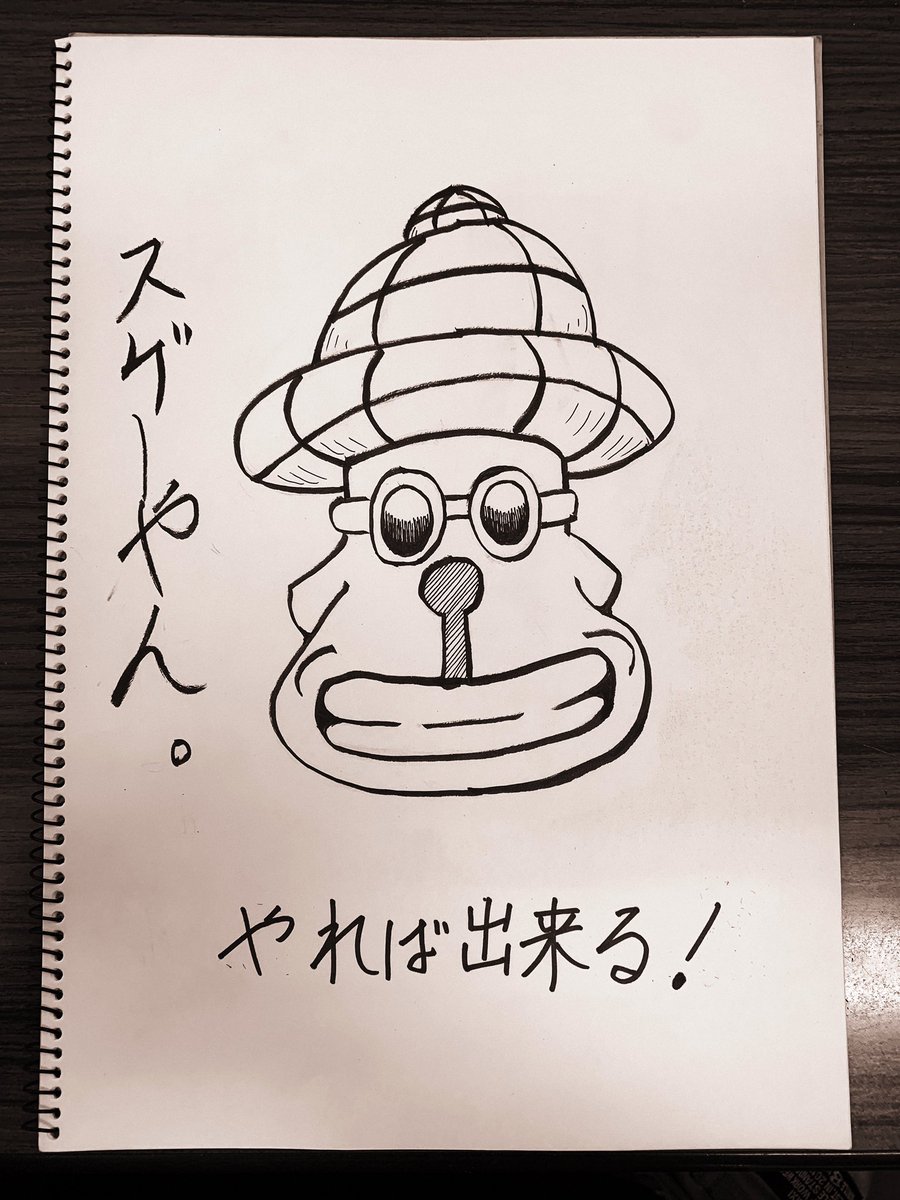 スゲーやん。
やれば出来る!